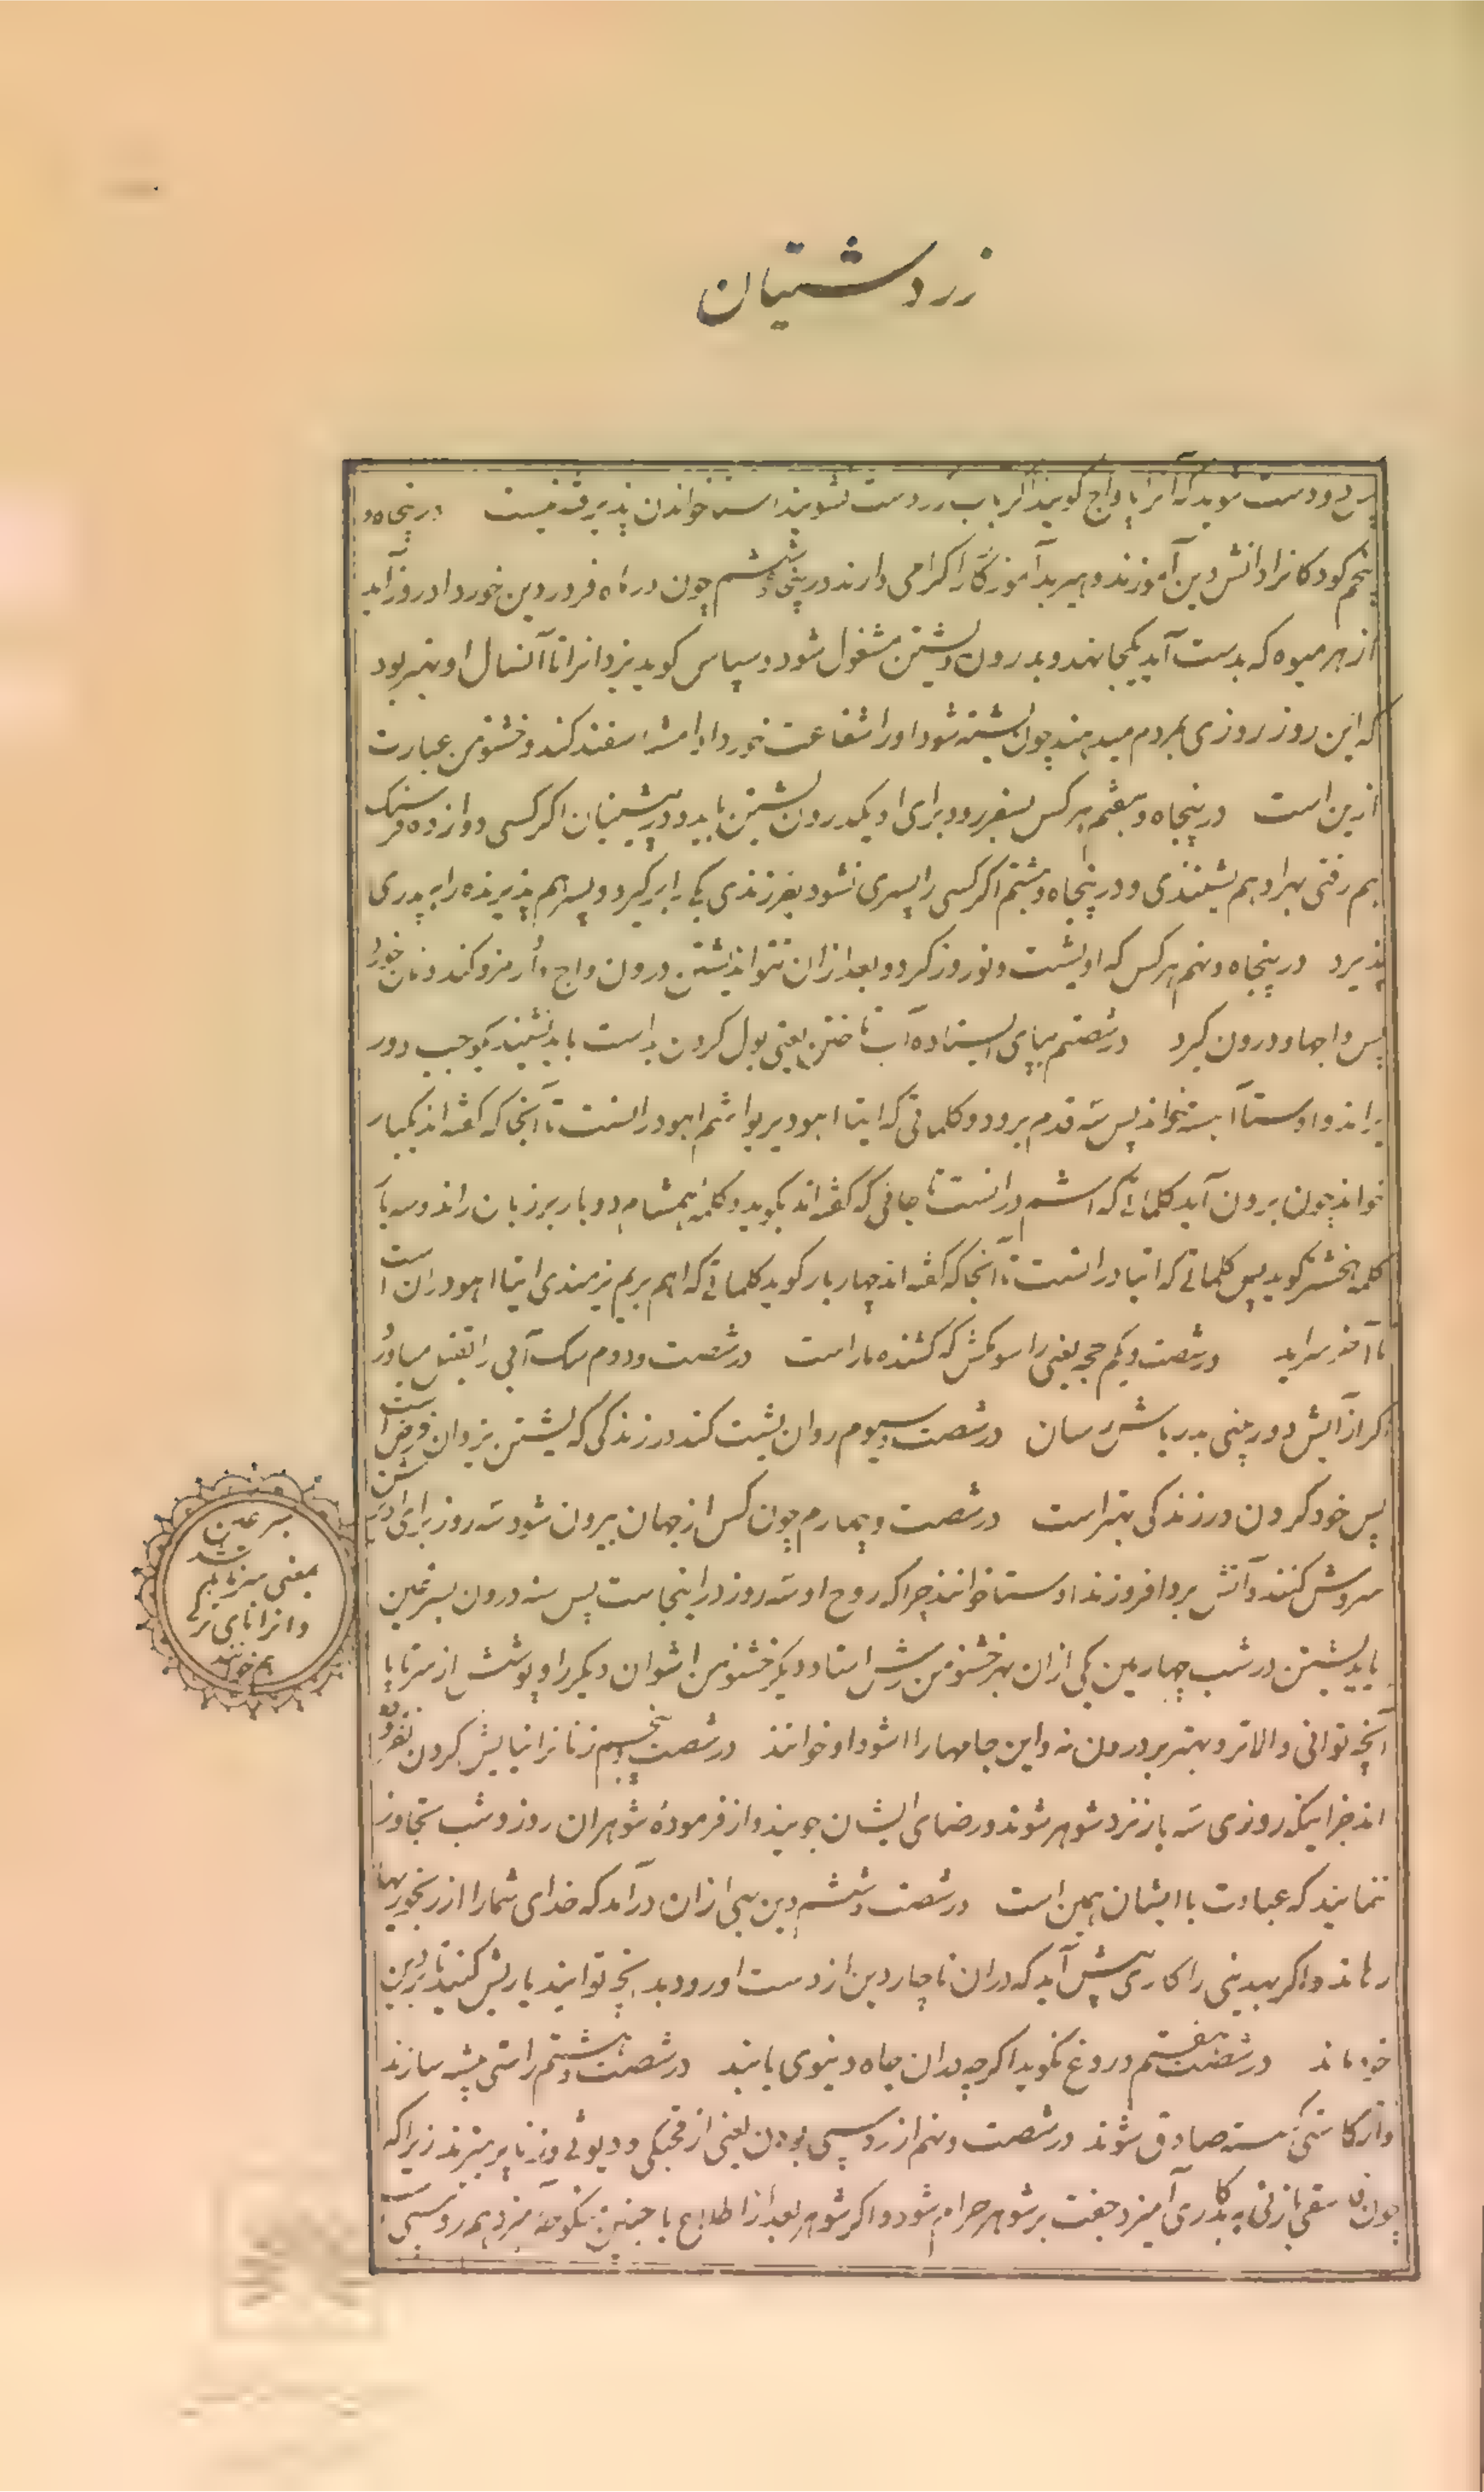 زردشتیان
و دست شویند که آنرا پاواج گویند اگر باب رز دست نشویند است خواندن پذیرفته نیست در پنجاه و
پنجم کودکانرا دانش دین آموزند و هیربد آموزگار را گرامی دارند در پنجاه و ششم چون در ماه فروردین خورداد روز آید
از هر میوه که بدست آید یکجا نهند و بدرون یشتن مشغول شود و سپاس گوید یزدانرا تا آنسال او بهتر بود
که این روز روزی بمردم میدهند چون یشته شود او را شفاعت خورداد امشاسفند کند و خشنومن عبارت
ازین است در پنجاه و هفتم هر کس بسفر رود برای او یک درون یشتن باید و در پیشینیان اگر کسی دوازده فرسنگ
هم رفتی بهر او هم یشتندی و در پنجاه و هشتم اگر کسی را پسری نشود بفرزندی یکی را برگیرد و پسر هم پذیرنده را به پدری
پذیرد در پنجاه و نهم هر کس که او یشت و نوروز کرد و بعد از آن نتواند یشتن درون واج اُرمزد کند و نان خورد
پس واجها و درون گیرد در شصتم بپای ایستاده آب تاختن یعنی بول کردن بد است باید نشیند یکوجب دور
براند و اوستا آهسته خواند پس سه قدم برود و کلماتی که ایتا اهو ویریو اشم اهو در آنست تا آنجا که گفته اند یکبار
خواند چون برون آید کلماتی که اشم در آنست تا جائی که گفته اند بگوید و کلمهٔ همشام دو بار بر زبان راند و سه بار
کلمه هخشتر گوید پس کلماتی که ایتا در آنست تا آنجا که گفته اند چهار بار گوید کلماتی که اهم بریم یزمندی ایتا اهو در آن است
تا آخر سراید در شصت و یکم حجه یعنی راسو مکش که کشنده مار است در شصت و دوم سگ آبی را بقتل میاور
اگر از آبش دور بینی بدریاش رسان در شصت و سیوم روان یشت کند در زندگی که یشتن یزدان فرض است
پس خود کردن در زندگی بهتر است در شصت و چهارم چون کس از جهان بیرون شود سه روز برای او یشتن
سروش کنند و آتش برو افروزند اوستا خوانند چرا که روح او سه روز در اینجاست پس سه درون بسرعین
باید یشتن در شب چهارمین یکی از آن بهر خشنومن رشن استاد و دیگر خشنومن اشوان دیگر را و پوشش از سر تا پا
آنچه توانی والاتر و بهتر بر درون نه و این جامها را اشوداد خوانند در شصت و پنجم زنانرا نیایش کردن نفرموده
اند جز اینکه روزی سه بار نزد شوهر شوند و رضای ایشان جویند و از فرمودهٔ شوهران روز و شب تجاوز
ننمایند که عبادت با ایشان همین است در شصت و ششم دین بهی از آن در آمد که خدای شما را از رنجوریها
رهاند و اگر بهدینی را کاری پیش آید که در آن ناچار دین از دست او رود بدانچه توانید یاریش کنید تا بر دین
خود ماند در شصت و هفتم دروغ نگوید اگرچه بدان جاه دنیوی یابند در شصت و هشتم راستی پیشه سازند
و از کاستی گسسته صادق شوند در شصت و نهم از روسپی بودن یعنی از قحبگی و دیوثی و زنا پرهیزند زیرا که
چون فاسقی با زنی به بدکاری آمیزد جفت بر شوهر حرام شود و اگر شوهر بعد از اطلاع با چنین نکوهیده آمیزد هم روسپی
سرعین
بمعنی سه تا باشد
و انرا نای نر
هم خوانند